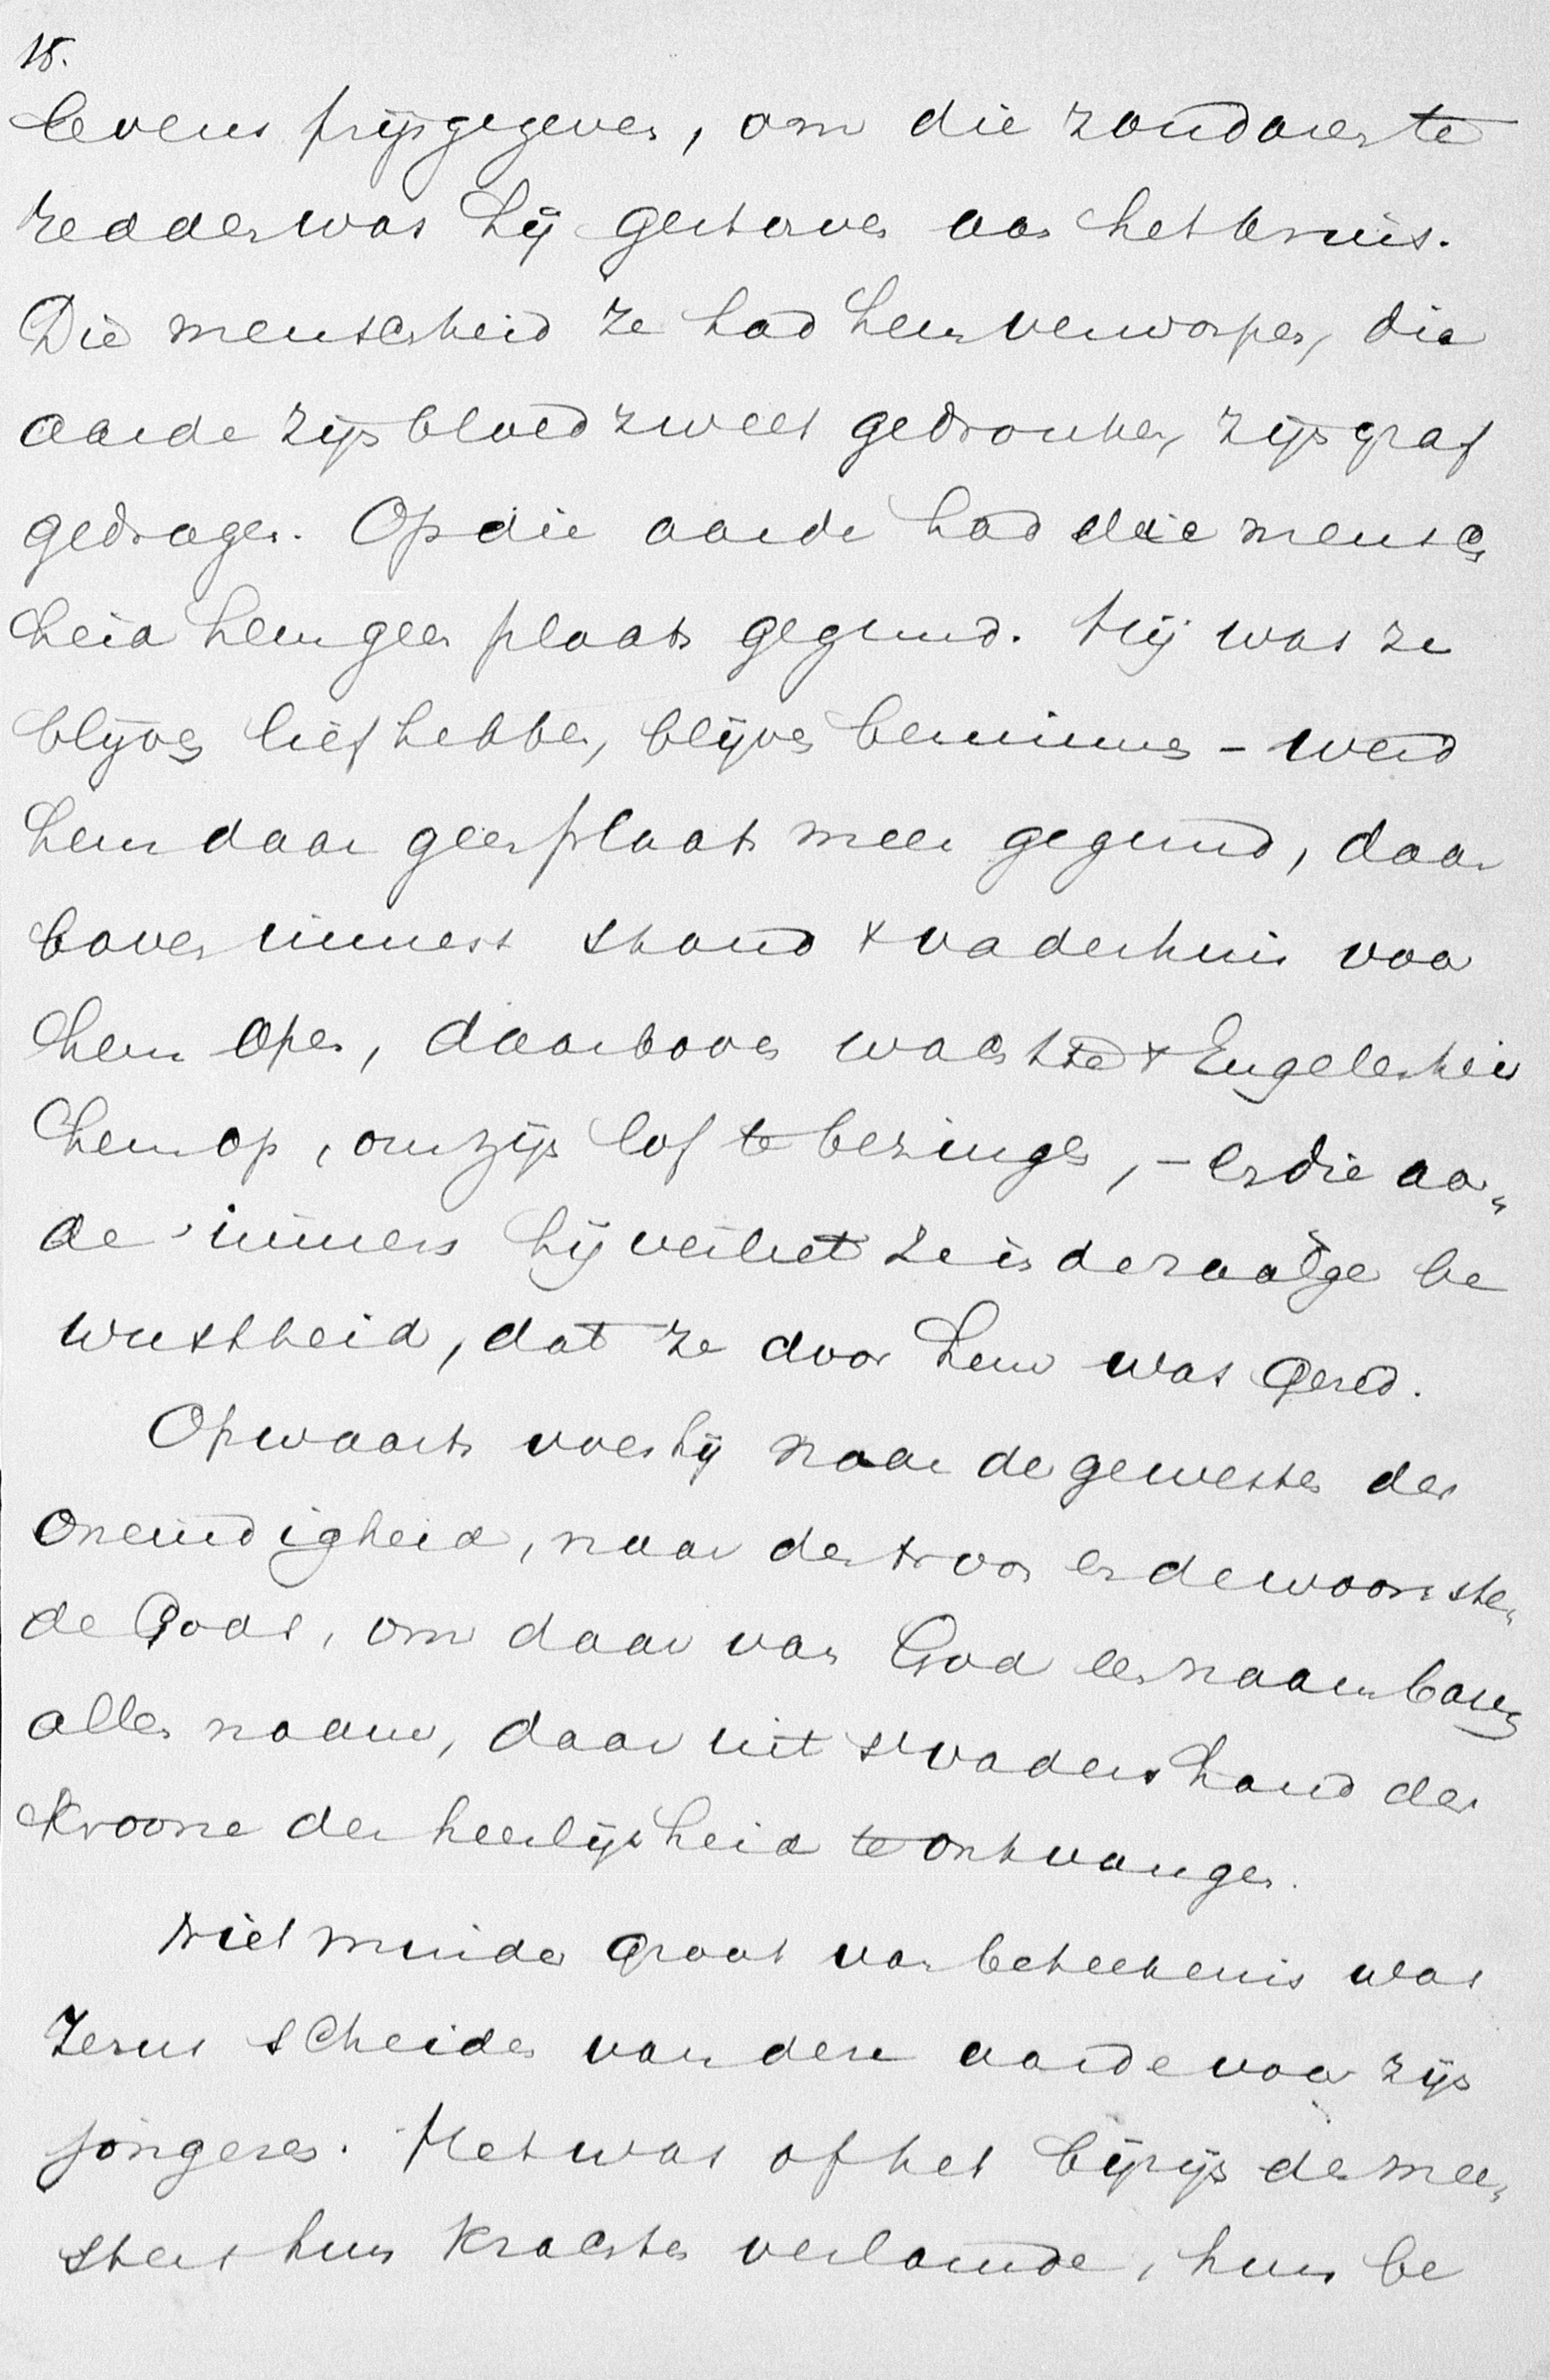 18.
levens prijsgegeven, om die zondaren te
redden was hij gestorven aan het kruis.
Die menschheid ze had hem verworpen, die
aarde zijn bloed zweet gedronken, zijn graf
gedragen. Op die aarde had die mensch
heid hem geen plaats gegund. Hij was ze
blijven liefhebben, blijven beminnen - werd
hem daar geen plaats meer gegund, daar
boven immers stond 't vaderhuis voor
hem open, daarboven wachtte 't Engelenheir
hem op, om zijn lof te bezingen, - en die aar„
de immers hij verliet ze in de zalige be
wustheid, dat ze door hem was gered.
Opwaarts voer hij naar de gewesten der
oneindigheid, naar den troon en de woonste„
de Gods, om daar van God een naam boven
allen naam, daar uit 's vaders hand den
Kroone der heerlijkheid te ontvangen.
Niet minder groot van beteekenis was
Jezus scheiden van deze aarde voor zijn
jongeren. Het was of het bijzijn des mee„
sters hun krachten verlamde, hun be